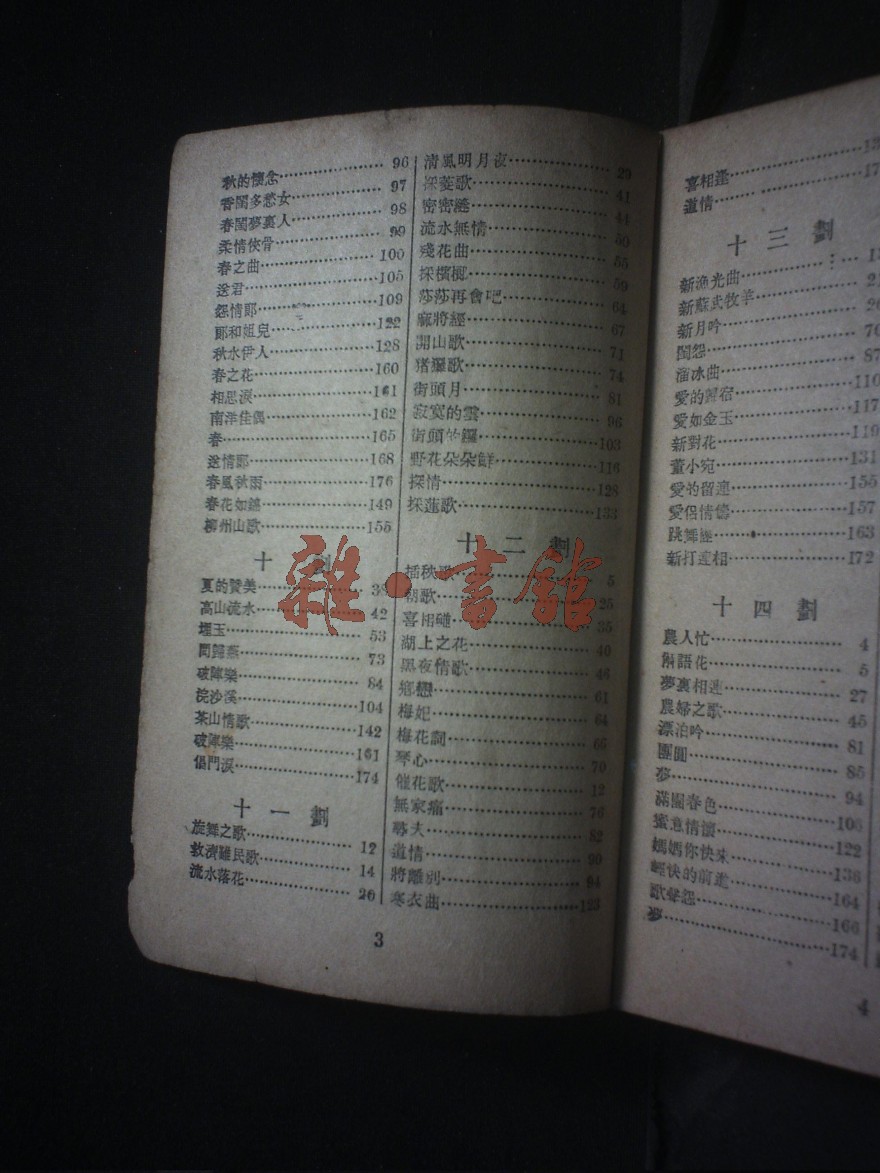 秋的懷念 96
香閨多愁女 97
春閨夢裏人 98
柔情俠骨 99
春之曲 100
送君 105
怨情郎 109
郎和姐兒 122
秋水伊人 128
春之花 160
相思淚 161
南洋佳偶 162
春 165
送情郎 168
春風秋雨 176
春花如錦 149
柳州山歌 155
十 劃
夏的贊美 38
高山流水 42
埋玉 53
問歸燕 73
破陣樂 84
浣沙溪 104
茶山情歌 142
破陣樂 161
倡門淚 174
十一劃
旋舞之歌 12
救濟難民歌 14
流水落花 26
清風明月夜 29
採菱歌 41
密密縫 44
流水無情 50
殘花曲 55
採檳榔 59
莎莎再會吧 64
麻將經 67
開山歌 71
猪玀歌 74
街頭月 81
寂寞的雲 96
街頭的 103
野花朵朵鮮 116
探情 128
採蓮歌 133
十二劃
插秧 5
朝歌 25
喜相碰 35
湖上之花 40
黑夜情歌 46
鄉戀 61
梅妃 64
梅花詞 65
琴心 70
催花歌 12
無家痛 76
尋夫 82
道情 90
將離別 94
寒衣曲 123
3
喜相逢
道情
十三劃
新漁光曲
新蘇武牧羊
新月吟
閨怨 70
溜冰曲 87
愛的歸宿 110
愛如金玉 117
新對花 119
董小宛 131
愛的留連 155
愛侶情儔 157
跳舞 163
新打蓮相 172
十四劃
農人忙 4
解語花 5
夢裏相逢 27
農婦之歌 45
漂泊吟 81
團圓 85
夢 94
滿園春色 106
蜜意情懷 122
媽媽你快來 136
輕快的前進 164
歌聲怨 166
夢 174
4
雜·書館